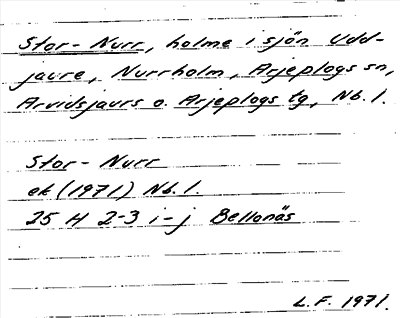 Stor-Nurr, holme i sjön Udd-
jaure, Nurrholm, Arjeplogs sn,
Arvidsjaurs o. Arjeplogs tg, Nb. l.
Stor-Nurr
ek (1971) Nb. l.
25 H 2-3 i-j Bellonäs
L.F. 1971.